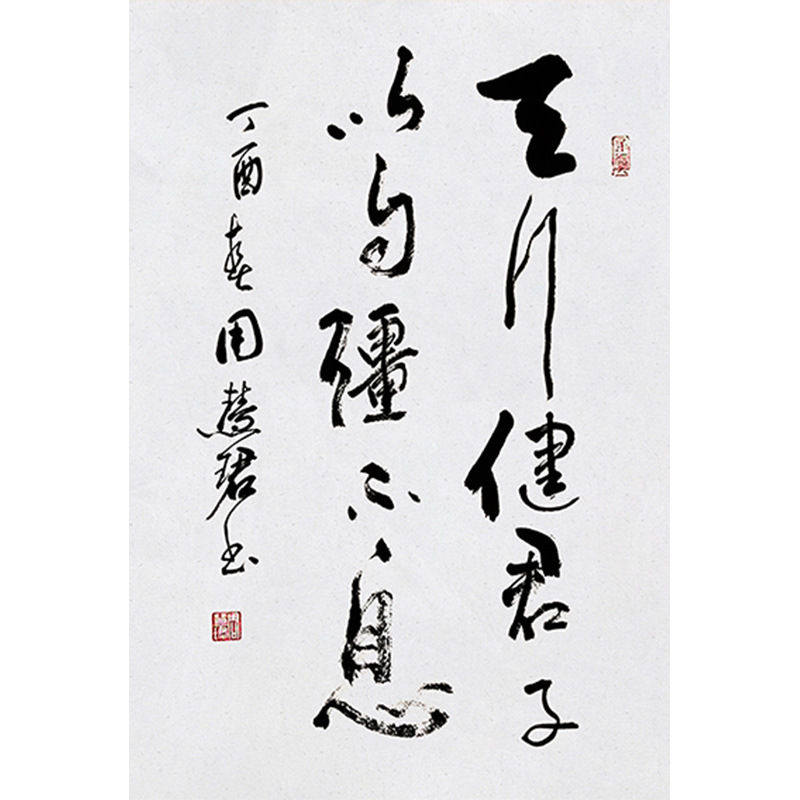 天行健君子
以自彊不息
丁酉春周慧君书